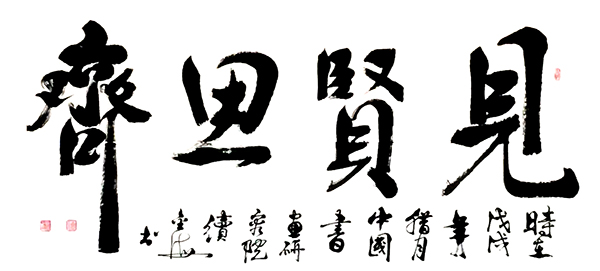 見賢思齊
時在戊戌年腊月中國書畫研究院
书